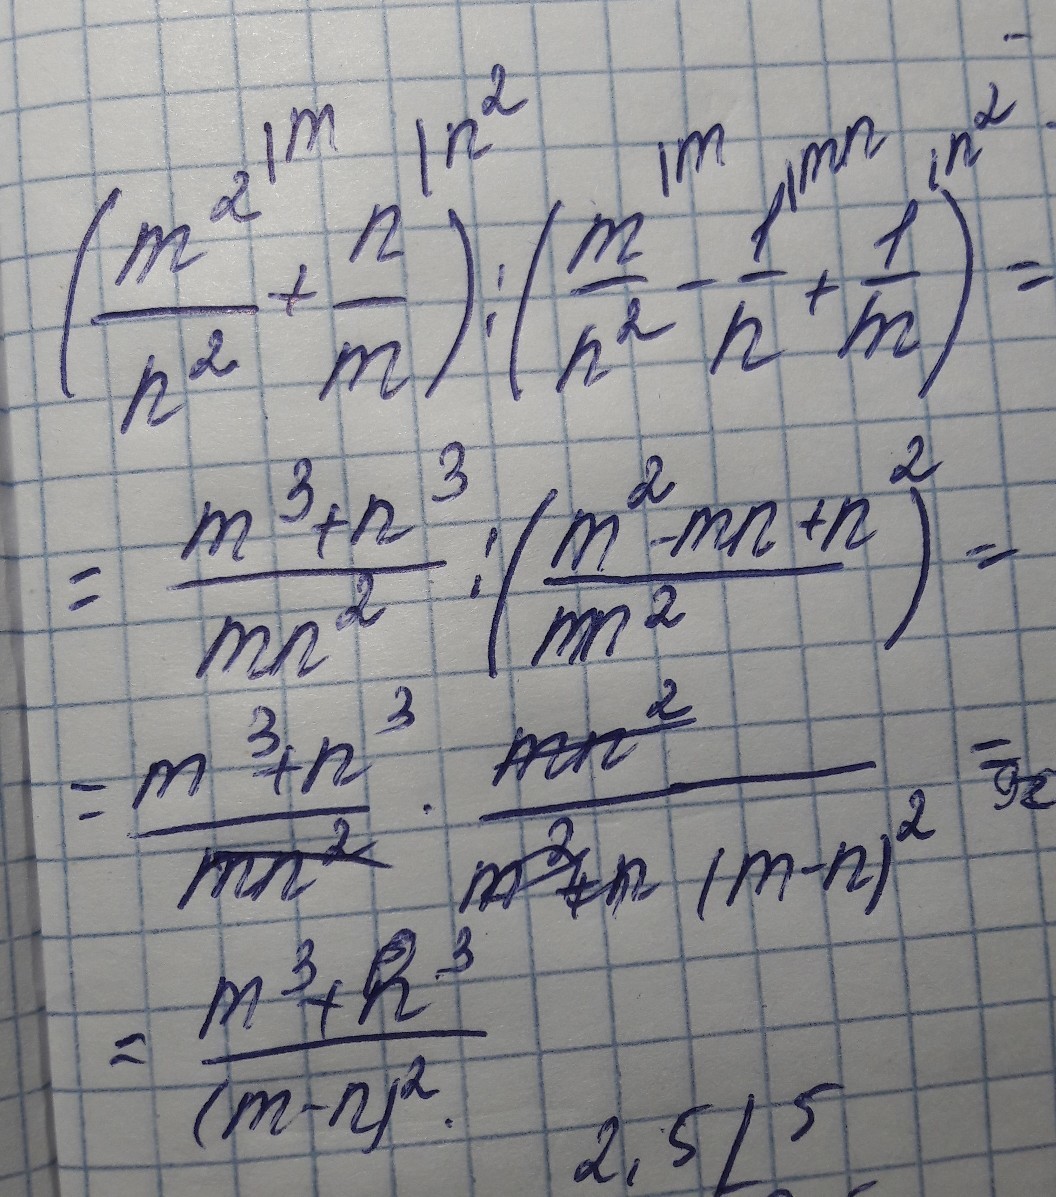 (m²/n² |m + n/m |n²) : (m/n² |m - 1/n |mn + 1/m |n²) =
= m³+n³/mn² : (m²-mn+n²/mn²) =
= m³+n³/mn² · mn²/(m-n)² =
= m³+n³/(m-n)².
2,5 | 5